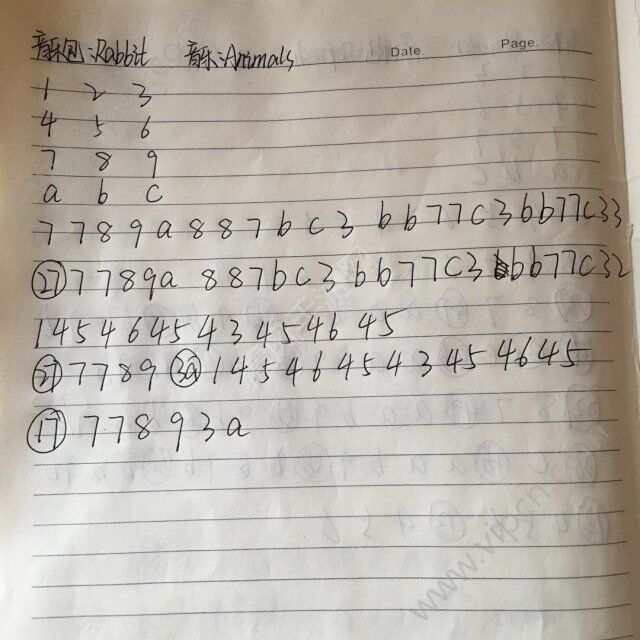 音乐包:Rabbit 音乐:Animals Date Page
1 2 3
4 5 6
7 8 9
a b c
7 7 8 9 a 8 8 7 b c 3 b b 7 7 c 3 b b 7 7 c 3 3
㉗ 7 7 8 9 a 8 8 7 b c 3 b b 7 7 c 3 b b 7 7 c 3 2
1 4 5 4 6 4 5 4 3 4 5 4 6 4 5
7 7 8 9 (3a) 1 4 5 4 6 4 5 4 3 4 5 4 6 4 5
⑰ 7 7 8 9 3 a